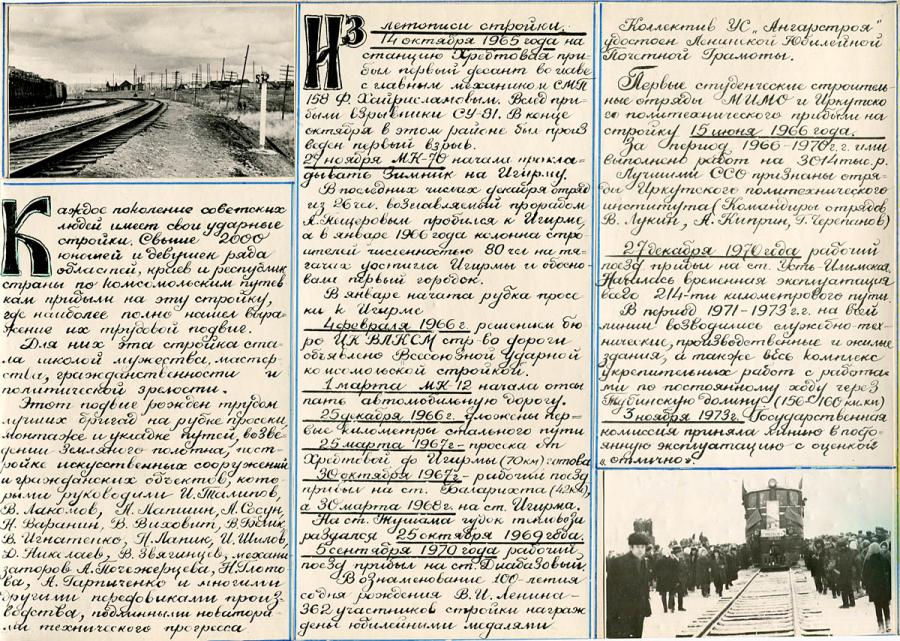 Каждое поколение советских
людей имеет свои ударные
стройки. Свыше 2000
юношей и девушек ряда
областей, краев и республик
страны по комсомольским путев
кам прибыли на эту стройку,
где наиболее полно нашел выра-
жение их трудовой подвиг.
Для них эта стройка ста-
ла школой мужества, мастер-
ства, гражданственности и
политической зрелости.
Этот подвиг рожден трудом
лучших бригад на рубке просеки,
монтаже и укладке путей, возве-
дении земляного полотна, пост-
ройке искусственных сооружений
и гражданских объектов, кото-
рыми руководили И. Талипов,
В. Лакомов, П. Лапшин, А. Сосун,
Н. Варанин, В. Виховит, В. Белик,
В. Игнатенко, П. Папик, И. Шилов,
Д. Николаев, В. Звягинцев, механи
заторов А. Почежерцева, Н. Глото
ва, А. Гарпиченко и многими
другими передовиками произ-
водства, подлинными новатора
ми технического прогресса
Из летописи стройки.
14 октября 1965 года на
станцию Хребтовая при-
был первый десант во главе
с главным механиком СМП
158 Ф. Хайрисламовым. Вслед при-
были взрывники СУ-91. В конце
октября в этом районе был произ
веден первый взрыв.
29 ноября МК-70 начала прокла-
дывать Зимник на Игирму.
В последних числах декабря отряд
из 26 чел. возглавляемый прорабом
А. Нещеровым пробился к Игирме,
а в январе 1966 года колонна стро
ителей численностью 80 чел на тя-
гачах достигла Игирмы и обосно-
вала первый городок.
В январе начата рубка просе
ки к Игирме
4 февраля 1966 г. решением бю
ро ЦК ВЛКСМ стр-во дороги
объявлено Всесоюзной ударной
комсомольской стройкой.
1 марта МК-12 начала отсы
пать автомобильную дорогу.
25 декабря 1966 г. уложены пер-
вые километры стального пути
25 марта 1967 г- просека от
Хребтовой до Игирмы (70км) готова
30 октября 1967г- рабочий поезд
прибыл на ст. Баларихта (42км),
а 30 марта 1968 г. на ст. Игирма.
На ст. Тушама гудок тепловоза
раздался 25 октября 1969 года.
5 сентября 1970 года рабочий
поезд прибыл на ст. Диабазовый.
В ознаменование 100-летия
со дня рождения В. И. Ленина-
362 участников стройки награж
дены юбилейными медалями
Коллектив УС „Ангарстроя"
удостоен Ленинской Юбилейной
Почетной Грамоты.
Первые студенческие строитель-
ные отряды МИМО и Иркутско
го политехнического прибыли на
стройку 15 июня 1966 года.
За период 1966-1970 г.г. ими
выполнено работ на 3014 тыс. р.
Лучшими ССО признаны отря-
ды Иркутского политехнического
института (Командиры отрядов
В. Лукин, А. Киприн, Г. Черепанов)
27 декабря 1970 года рабочий
поезд прибыл на ст. Усть-Илимская.
Началась временная эксплуатация
всего 214-ти километрового пути.
В период 1971-1973 г.г. на всей
линии возводились служебно-тех-
нические, производственные и жилые
здания, а также весь комплекс
укрепительных работ с работа-
ми по постоянному ходу через
Тубинскую долину (156-160 км.км)
3 ноября 1973 г. Государственная
комиссия приняла линию в посто-
янную эксплуатацию с оценкой
«отлично».